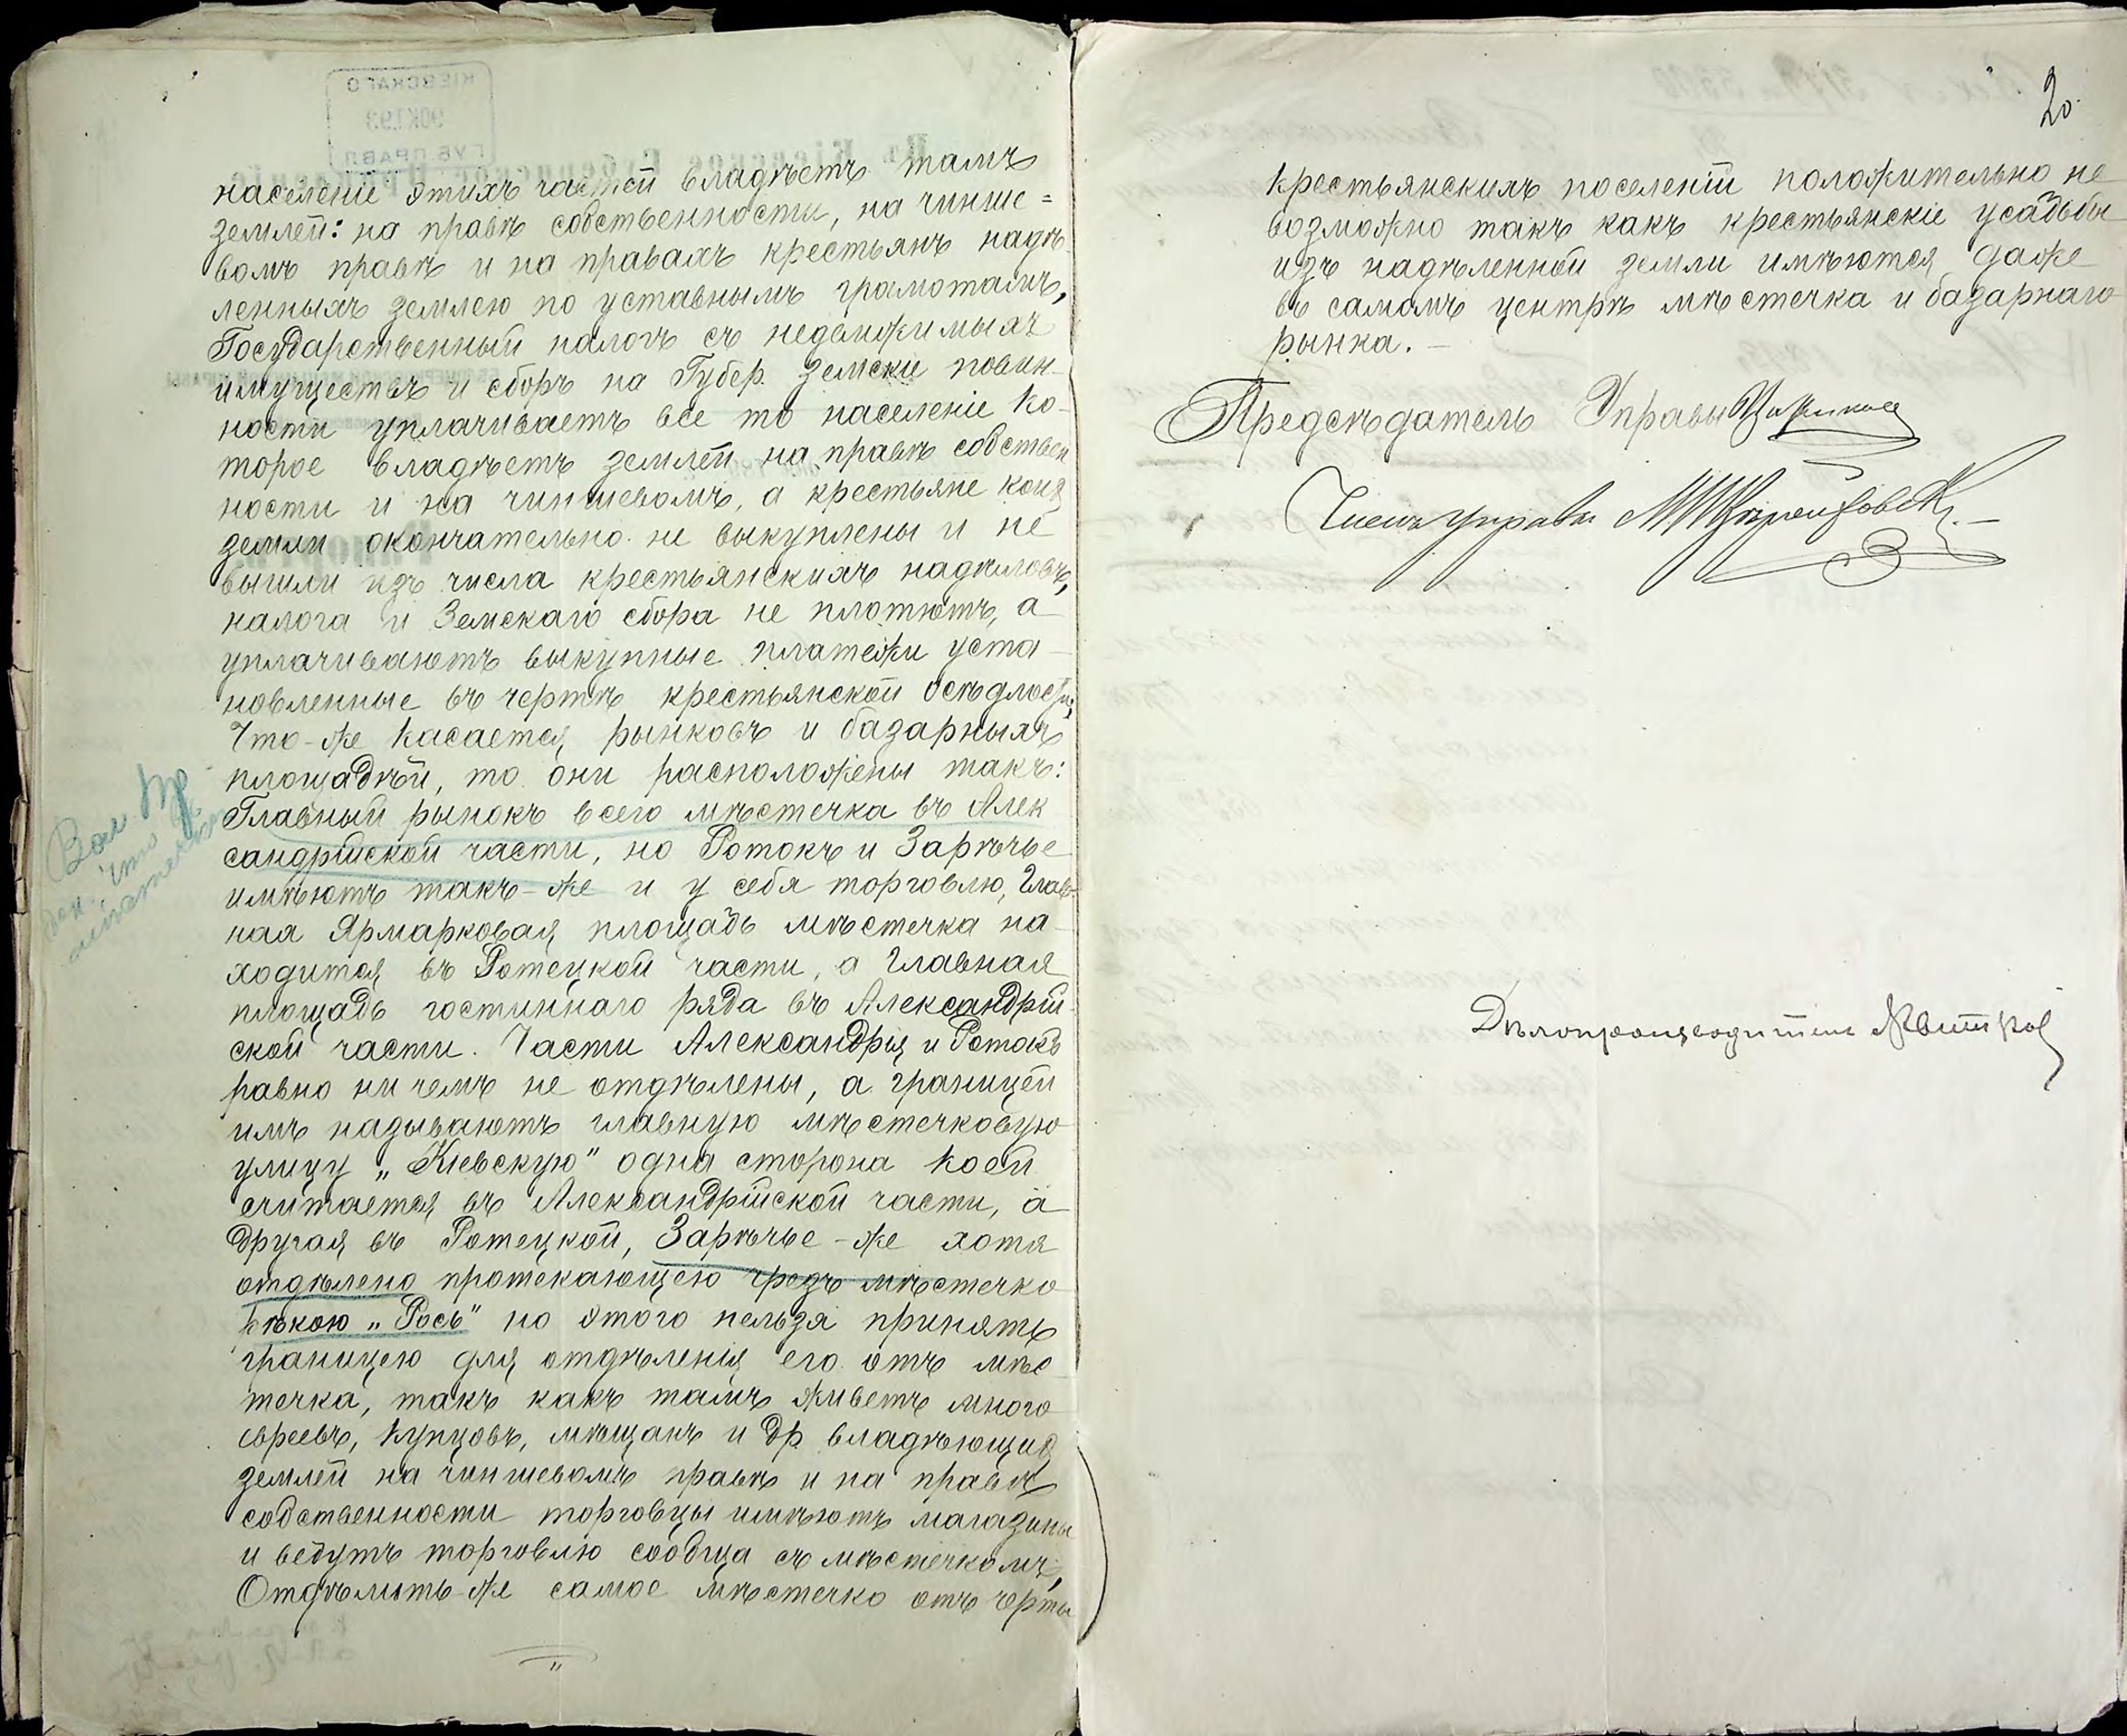 населеніе этихъ частей владѣетъ тамъ
землей: на правѣ собственности, на чинше=
вомъ правѣ и на правахъ крестьянъ надѣ-
ленныхъ землею по уставнымъ грамотамъ,
Государственный налогъ съ недвижимыхъ
имуществъ и сборъ на Губер. земскіе повин-
ности уплачиваетъ все то населеніе ко-
торое владѣетъ землей на правѣ собствен
ности и на чиншевомъ, а крестьяне коихъ
земли окончательно не выкуплены и не
вышли изъ числа крестьянскихъ надѣловъ,
налога и Земскаго сбора не плотютъ, а
уплачиваютъ выкупные платежи уста-
новленные въ чертѣ крестьянской осѣдлости,
Что-же касается рынковъ и базарныхъ
площадѣй, то они расположены такъ:
Главный рынокъ всего мѣстечка въ Алек
сандрійской части, но Ротокъ и Зарѣчье
имѣютъ такъ-же и у себя торговлю, Глав-
ная Ярмарковая площадь мѣстечка на-
ходится въ Ротецкой части, а Главная
площадь гостиннаго ряда въ Александрій-
ской части. Части Александрія и Ротокъ
равно ни чемъ не отдѣлены, а границей
имъ называютъ главную мѣстечковую
улицу „Кіевскую" одна сторона коей
считается въ Александрійской части, а
другая въ Ротецкой, Зарѣчье-же хотя
отдѣлено протекающею чрезъ мѣстечко
рѣкою „Рось" но этого нельзя принять
границею для отдѣленія его отъ мѣс-
течка, такъ какъ тамъ живетъ много
евреевъ, купцовъ, мѣщанъ и др. владѣющихъ
землей на чиншевомъ правѣ и на правѣ
собственности торговцы имѣютъ магазины
и ведутъ торговлю сообща съ мѣстечкомъ,
Отдѣлить-же самое мѣстечко отъ черты
20.
крестьянскихъ поселеній положительно не
возможно такъ какъ крестьянскіе усадьбы
изъ надѣленной земли имѣются даже
въ самомъ центрѣ мѣстечка и базарнаго
рынка.-
Предсѣдатель Управы
Членъ Управы
Дѣлопроизводитель